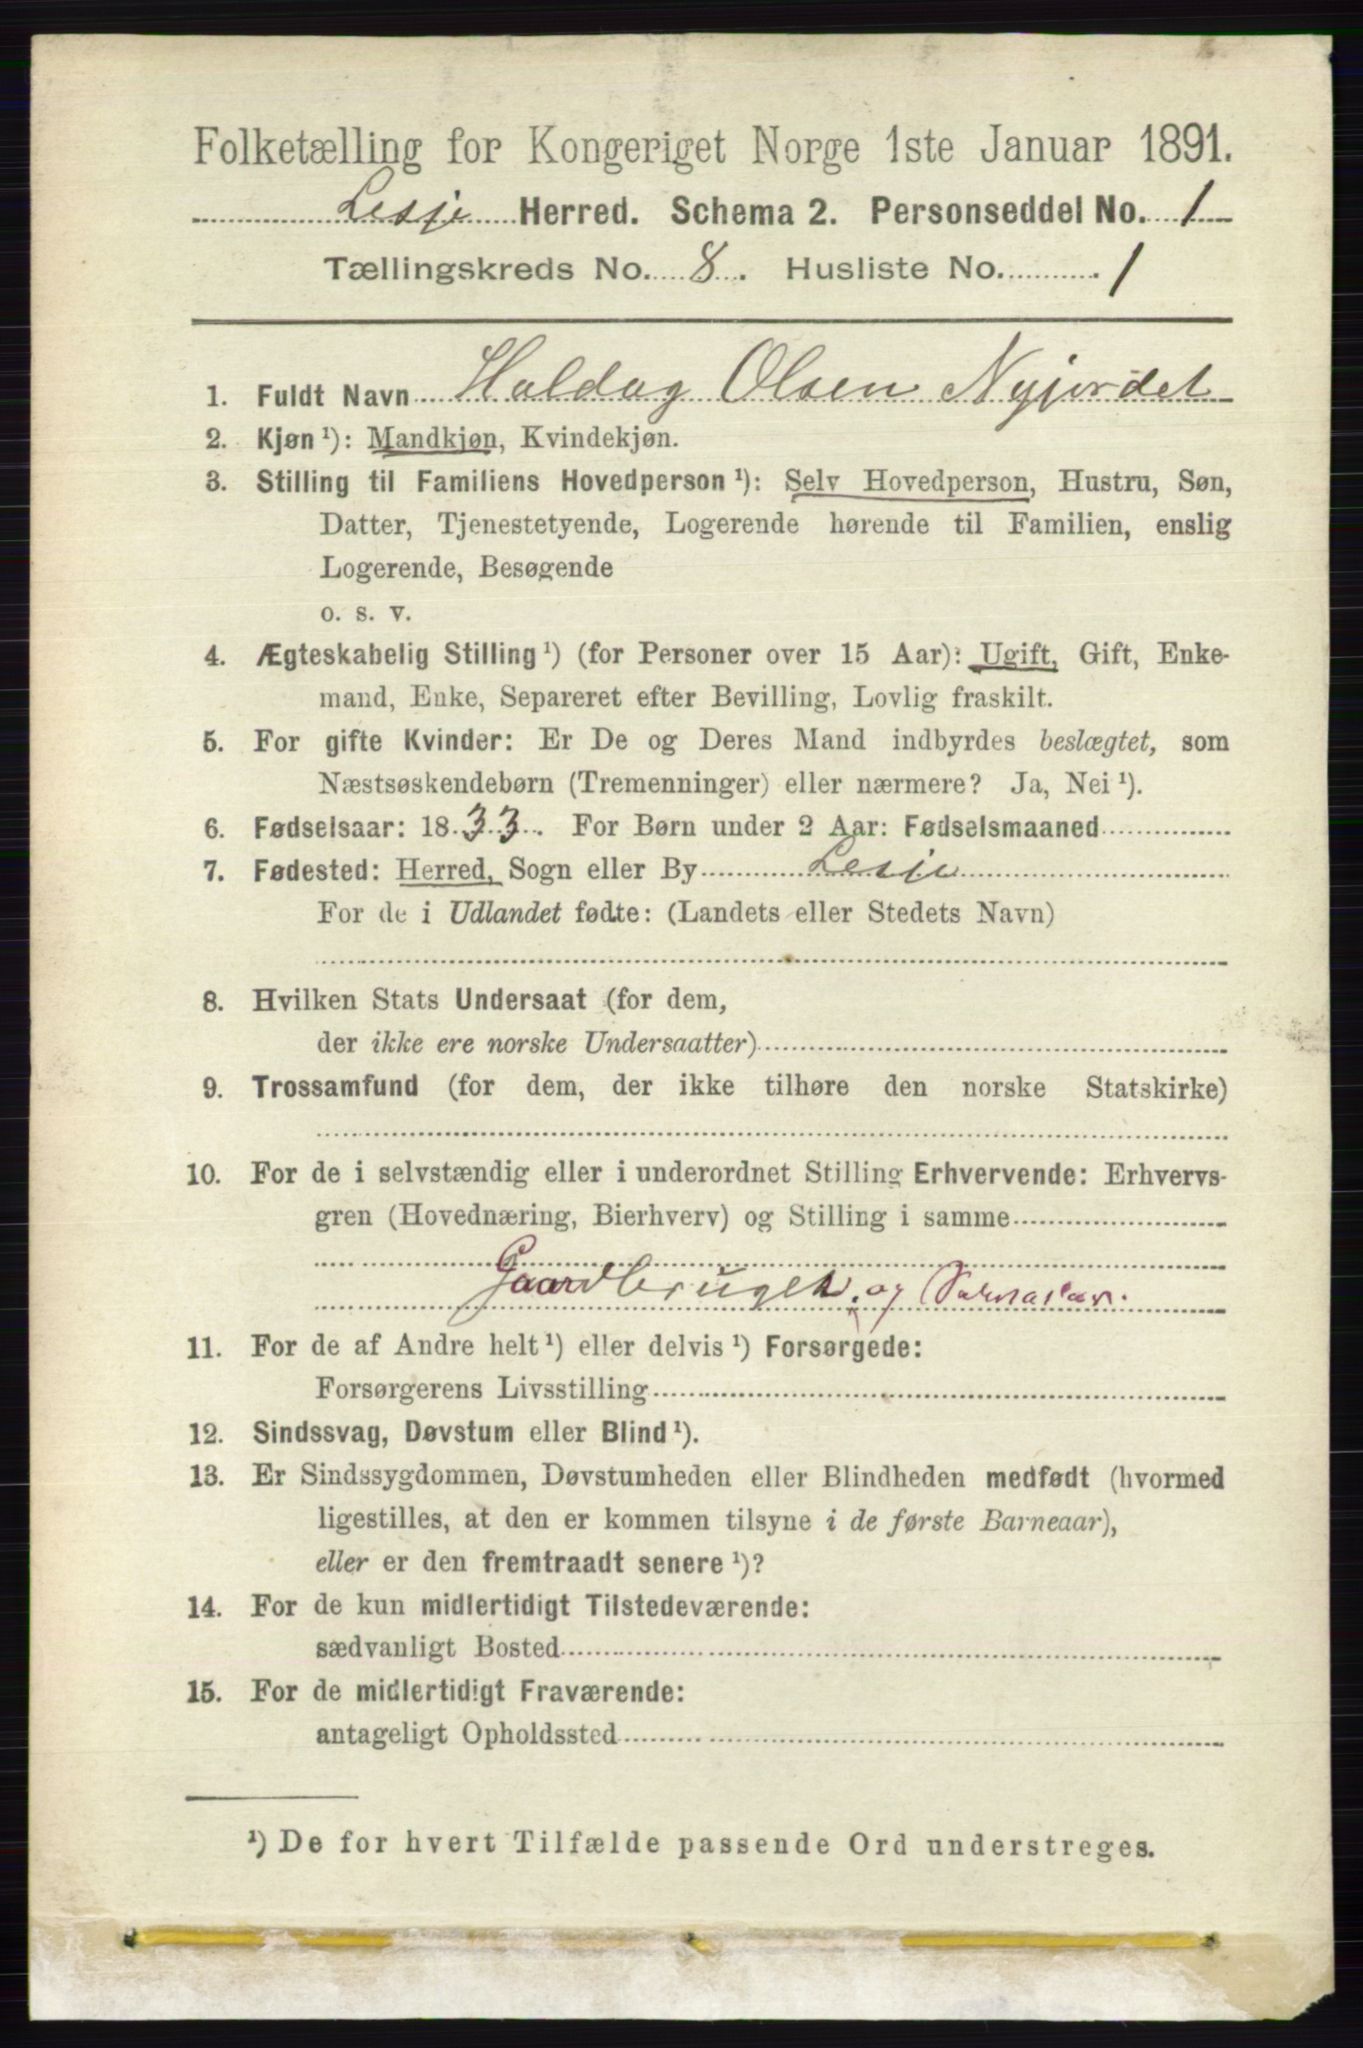 Folketælling for Kongeriget Norge 1ste Januar 1891.
Lesje Herred. Schema 2. Personseddel No. 1
Tællingskreds No. 8. Husliste No. 1
1. Fuldt Navn Haldog Olsen Nyjordet
2. Kjøn ¹): Mandkjøn, Kvindekjøn.
3. Stilling til Familiens Hovedperson ¹): Selv Hovedperson, Hustru, Søn,
Datter, Tjenestetyende, Logerende hørende til Familien, enslig
Logerende, Besøgende
o. s. v.
4. Ægteskabelig Stilling ¹) (for Personer over 15 Aar): Ugift, Gift, Enke-
mand, Enke, Separeret efter Bevilling, Lovlig fraskilt.
5. For gifte Kvinder: Er De og Deres Mand indbyrdes beslægtet, som
Næstsøskendebørn (Tremenninger) eller nærmere? Ja, Nei ¹).
6. Fødselsaar: 1833. For Børn under 2 Aar: Fødselsmaaned
7. Fødested: Herred, Sogn eller By Lesje
For de i Udlandet fødte: (Landets eller Stedets Navn)
8. Hvilken Stats Undersaat (for dem,
der ikke ere norske Undersaatter)
9. Trossamfund (for dem, der ikke tilhøre den norske Statskirke)
10. For de i selvstændig eller i underordnet Stilling Erhvervende: Erhvervs-
gren (Hovednæring, Bierhverv) og Stilling i samme
Gaardbruger. og
11. For de af Andre helt ¹) eller delvis ¹) Forsørgede:
Forsørgerens Livsstilling
12. Sindssvag, Døvstum eller Blind ¹).
13. Er Sindssygdommen, Døvstumheden eller Blindheden medfødt (hvormed
ligestilles, at den er kommen tilsyne i de første Barneaar),
eller er den fremtraadt senere ¹)?
14. For de kun midlertidigt Tilstedeværende:
sædvanligt Bosted
15. For de midlertidigt Fraværende:
antageligt Opholdssted
¹) De for hvert Tilfælde passende Ord understreges.